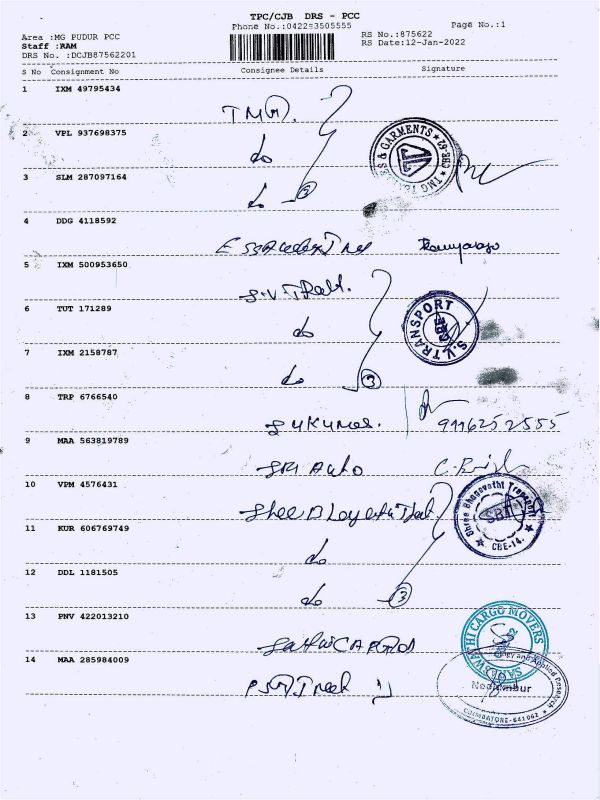 TPC/CJB DRS - PCC
Phone No.:04223505555 Page No.:1
Area :MG PUDUR PCC RS No.:875622
Staff :RAM RS Date:12-Jan-2022
DRS No. :DCJB87562201
S No Consignment No Consignee Details Signature
1 IXM 49795434
TMG.
2 VPL 937698375
do
3 SLM 287097164
do 3
& GARMENTS ★ CBE-62 ★ TMG
4 DDG 4118592
5 IXM 500953650
S.V.
6 TUT 171289
do
S.V. TRANSPORT CBE
7 IXM 2158787
do 3
8 TRP 6766540
Sukumar. 9116252555
9 MAA 563819789
SRI Auto
10 VPM 4576431
Shree
Shree Bhagavathi Transport SBT ★ CBE-14. ★
11 KUR 606769749
do
12 DDL 1181505
do 3
13 PNV 422013210
SARASWATHI CARGO MOVERS
14 MAA 285984009
and Applied Research
COIMBATORE-641062